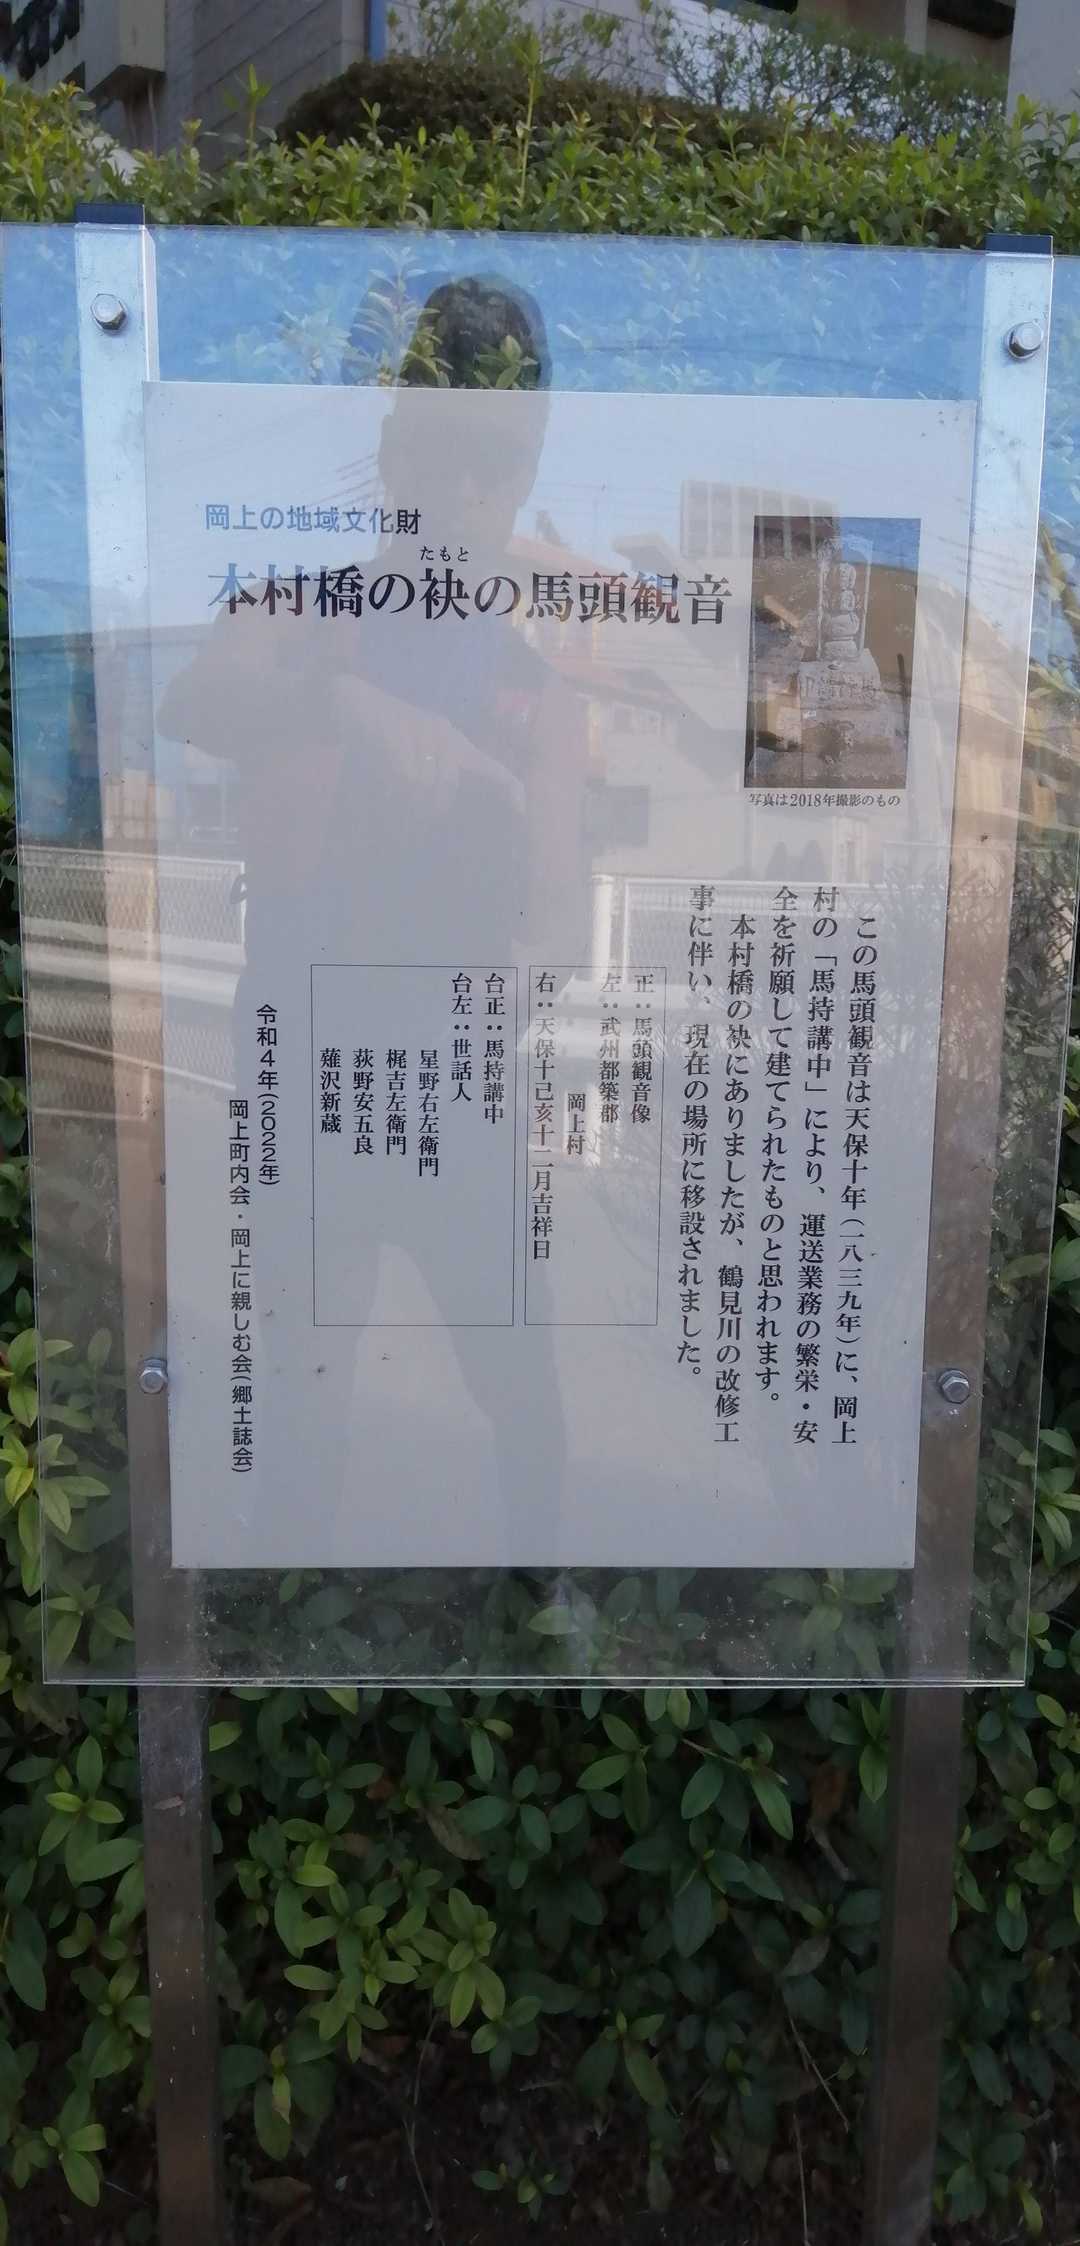 岡上の地域文化財
たもと
本村橋の袂の馬頭観音
写真は2018年撮影のもの
この馬頭観音は天保十年(一八三九年)に、岡上
村の「馬持講中」により、運送業務の繁栄・安
全を祈願して建てられたものと思われます。
本村橋の袂にありましたが、鶴見川の改修工
事に伴い、現在の場所に移設されました。
正：馬頭観音像
左：武州都築郡
岡上村
右：天保十己亥十二月吉祥日
台正：馬持講中
台左：世話人
星野右左衛門
梶吉左衛門
荻野安五良
薙沢新蔵
令和4年(2022年)
岡上町内会・岡上に親しむ会(郷土誌会)